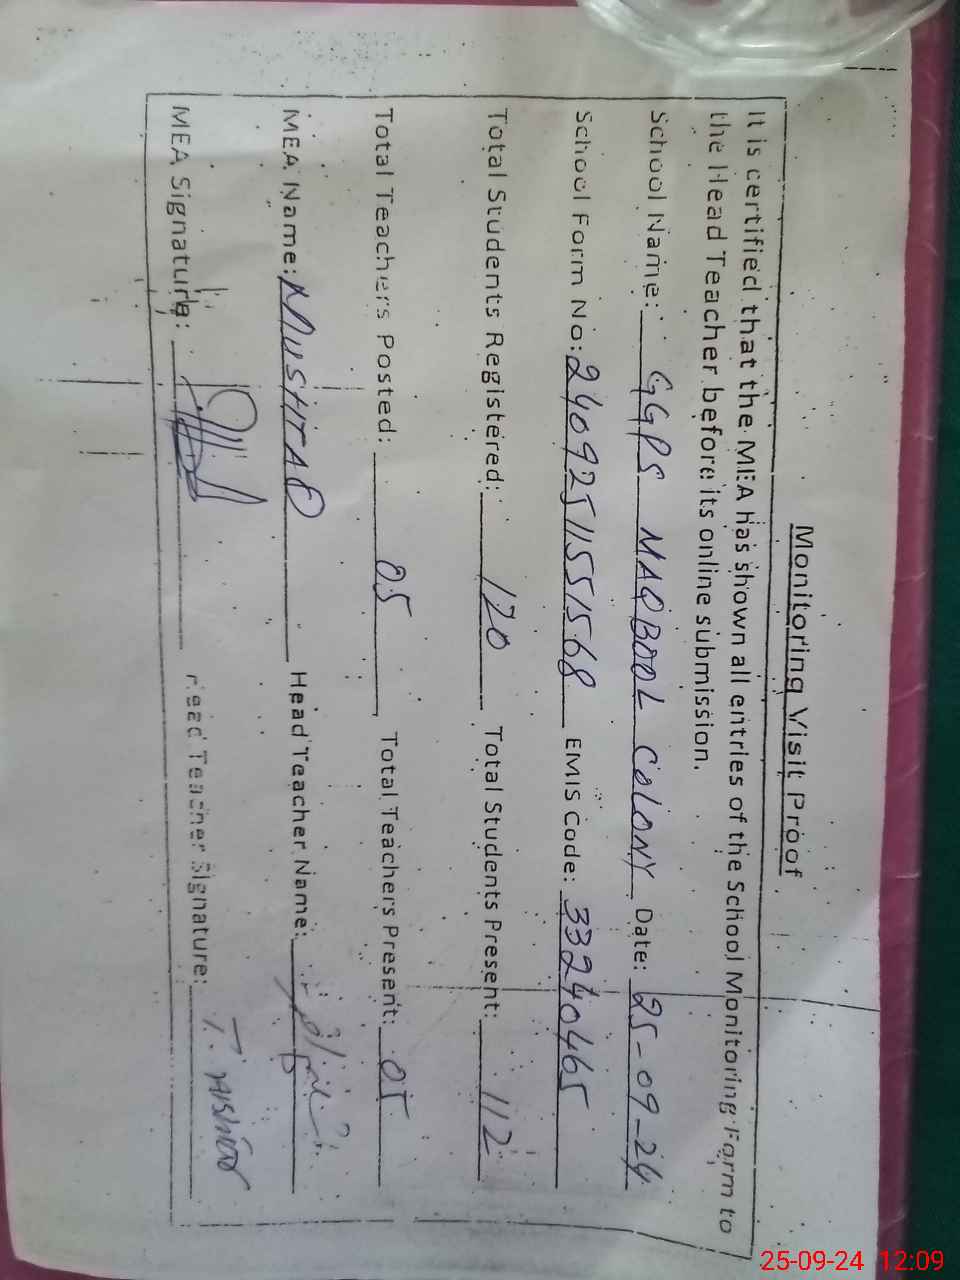 Monitoring Visit Proof
It is certified that the MEA has shown all entries of the School Monitoring Form to
the Head Teacher before its online submission.
School Name: GGPS MAQBOOL COLONY Date: 25-09-24
School Form No: 240925115551568 EMIS Code: 33240465
Total Students Registered: 120 Total Students Present: 112
Total Teachers Posted: 05 Total Teachers Present: 05
MEA Name: MUSHTAQ Head Teacher Name:
MEA Signature: Head Teacher Signature:
25-09-24 12:09